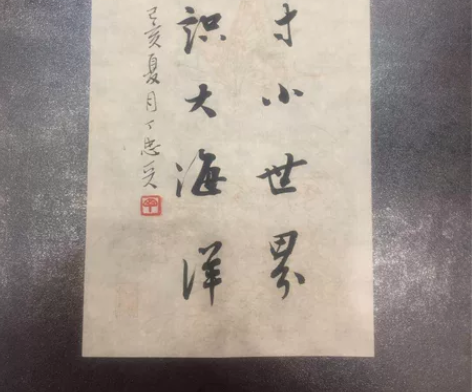 寸小世界
识大海洋
己亥夏月丁忠